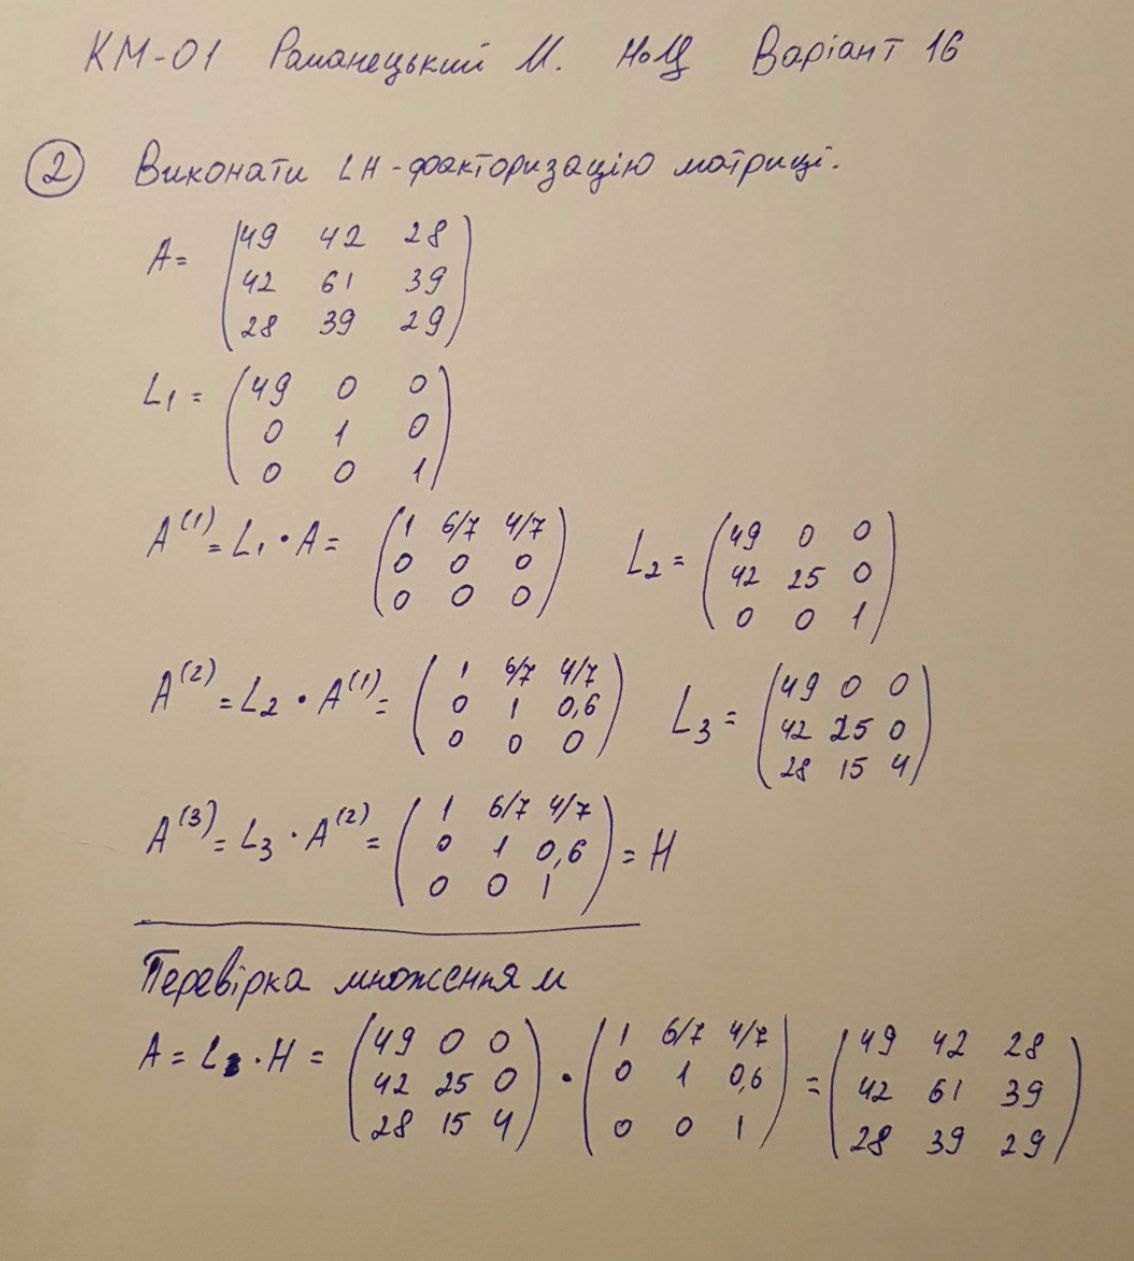 КМ-01 Романецький М. НоЦ Варіант 16
② Виконати LH-факторизацію матриці.
A = (49 42 28
42 61 39
28 39 29)
L₁ = (49 0 0
0 1 0
0 0 1)
A⁽¹⁾ = L₁ · A = (1 6/7 4/7
0 0 0
0 0 0)
L₂ = (49 0 0
42 25 0
0 0 1)
A⁽²⁾ = L₂ · A⁽¹⁾ = (1 6/7 4/7
0 1 0,6
0 0 0)
L₃ = (49 0 0
42 25 0
28 15 4)
A⁽³⁾ = L₃ · A⁽²⁾ = (1 6/7 4/7
0 1 0,6
0 0 1) = H
Перевірка множенням
A = L₃ · H = (49 0 0
42 25 0
28 15 4) · (1 6/7 4/7
0 1 0,6
0 0 1) = (49 42 28
42 61 39
28 39 29)